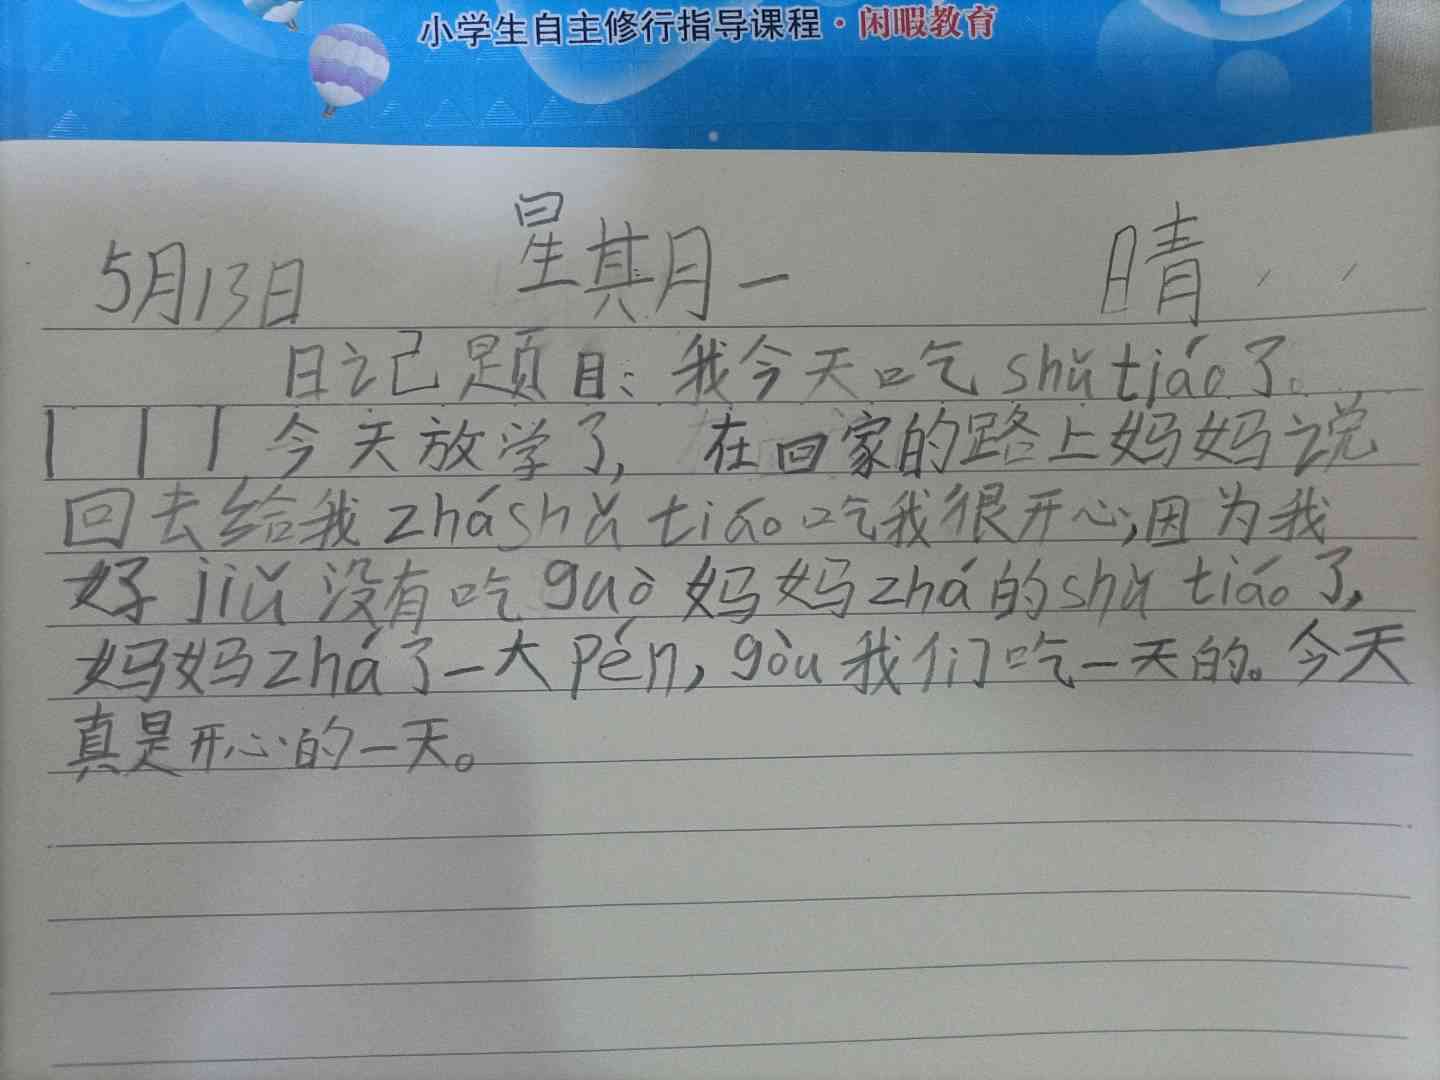 小学生自主修行指导课程·闲暇教育
5月13日 星其月一 晴
日记题目：我今天吃shǔtiáo了。
今天放学了，在回家的路上妈妈说
回去给我zháshǔ tiáo吃我很开心，因为我
好jiǔ没有吃guò妈妈zhá的shǔ tiáo了，
妈妈zhá了一大pén，gòu我们吃一天的。今天
真是开心的一天。